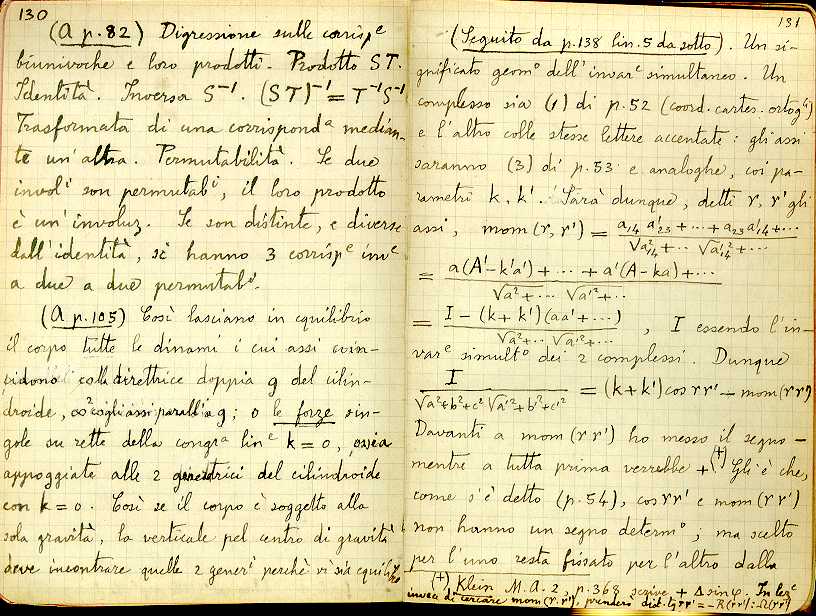 130
(A p. 82) Digressione sulle corrisp^e
biunivoche e loro prodotti. Prodotto ST.
Identità. Inversa S⁻¹. (ST)⁻¹ = T⁻¹S⁻¹
Trasformata di una corrispond^a median-
te un'altra. Permutabilità. Se due
invol^i son permutab^i, il loro prodotto
è un'involuz. Se son distinte, e diverse
dall'identità, si hanno 3 corrisp^e inv^e
a due a due permutab^i.
(A p. 105) Così lasciano in equilibrio
il corpo tutte le dinami i cui assi coin-
cidono colla direttrice doppia g del cilin-
droide, ∞² cogli assi parall^i a g; o le forze sin-
gole su rette della congr^a lin^e k = 0, ossia
appoggiate alle 2 generatrici del cilindroide
con k = 0. Così se il corpo è soggetto alla
sola gravità, la verticale pel centro di gravità
deve incontrare quelle 2 gener^i perchè vi sia equilibrio
131
(Seguito da p. 138 lin. 5 da sotto). Un si-
gnificato geom^o dell'invar^e simultaneo. Un
complesso sia (1) di p. 52 (coord. cartes. ortog^li)
e l'altro colle stesse lettere accentate: gli assi
saranno (3) di p. 53 e analoghe, coi pa-
rametri k, k'. Sarà dunque, detti r, r' gli
assi, mom(r, r') = (a₁₄ a'₂₃ + ... + a₂₃ a'₁₄ + ...) / (√a²₁₄ + ... √a'²₁₄ + ...)
= (a(A' - k'a') + ... + a'(A - ka) + ...) / (√a² + ... √a'² + ...)
= (I - (k + k')(aa' + ...)) / (√a² + ... √a'² + ...), I essendo l'in-
var^e simult^o dei 2 complessi. Dunque
I / (√a² + b² + c² √a'² + b'² + c'²) = (k + k') cos rr' - mom(rr')
Davanti a mom(rr') ho messo il segno -
mentre a tutta prima verrebbe + (+) Gli è che,
come s'è detto (p. 54), cos rr' e mom(rr')
non hanno un segno determ^o; ma scelto
per l'uno resta fissato per l'altro dalla
(+) Klein M.A. 2, p. 368 scrive + Δ sin φ. In lez^e
invece di cercare mom(r, r'), prendersi dist. tg rr' = - R(rr') : Ω(rr')